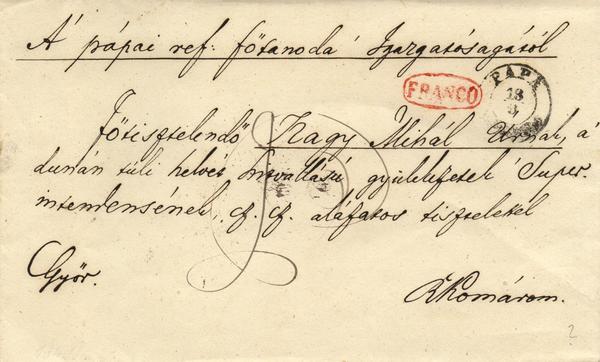 A' pápai ref. főtanoda' Igazgatóságától
FRANCO
PÁPA
13
Főtisztelendő Nagy Mihál Urnak, á
dunán túli helvét hitvallású gyülekezetek Super-
intendensének, alázatos tisztelettel
Győr.
RKomárom.